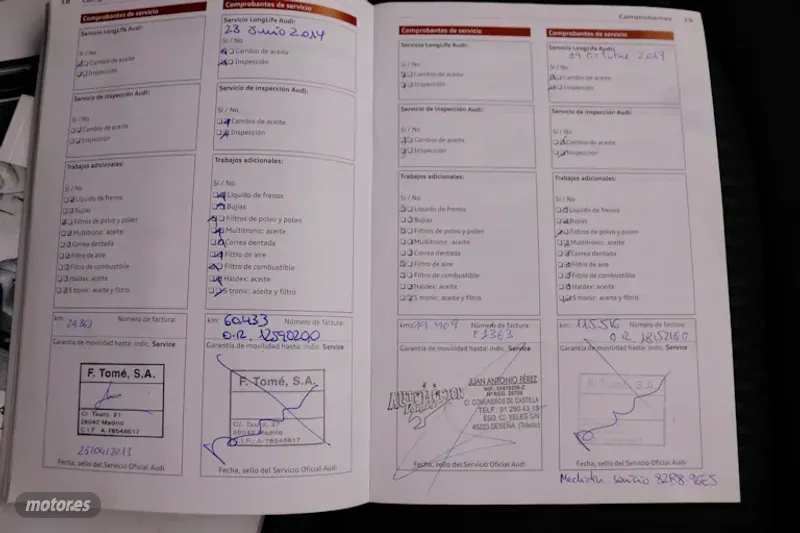 18
Comprobantes de servicio
Servicio LongLife Audi:
Sí / No
Cambio de aceite
Inspección
Servicio de inspección Audi:
Sí / No
Cambio de aceite
Inspección
Trabajos adicionales:
Sí / No
Líquido de frenos
Bujías
Filtros de polvo y polen
Multitronic: aceite
Correa dentada
Filtro de aire
Filtro de combustible
Haldex: aceite
S tronic: aceite y filtro
km:
Número de factura:
Garantía de movilidad hasta: indic. Service
F. Tomé, S.A.
C/ Tauro, 21
28042 Madrid
C.I.F. A-78546617
Fecha, sello del Servicio Oficial Audi
Comprobantes de servicio
Servicio LongLife Audi:
23 Junio 2014
Sí / No
Cambio de aceite
Inspección
Servicio de inspección Audi:
Sí / No
Cambio de aceite
Inspección
Trabajos adicionales:
Sí / No
Líquido de frenos
Bujías
Filtros de polvo y polen
Multitronic: aceite
Correa dentada
Filtro de aire
Filtro de combustible
Haldex: aceite
S tronic: aceite y filtro
km: 60.433 Número de factura:
O.R. 12590200
Garantía de movilidad hasta: indic. Service
F. Tomé, S.A.
C/. Tauro, 21
28042 Madrid
C.I.F. A-78546617
Fecha, sello del Servicio Oficial Audi
Comprobantes 19
Comprobantes de servicio
Servicio LongLife Audi:
Sí / No
Cambio de aceite
Inspección
Servicio de inspección Audi:
Sí / No
Cambio de aceite
Inspección
Trabajos adicionales:
Sí / No
Líquido de frenos
Bujías
Filtros de polvo y polen
Multitronic: aceite
Correa dentada
Filtro de aire
Filtro de combustible
Haldex: aceite
S tronic: aceite y filtro
km:
Número de factura:
Garantía de movilidad hasta: indic. Service
JUAN ANTONIO PÉREZ
C/ COMUNEROS DE CASTILLA
ESQ. C/ YELES S/N
(Toledo)
Fecha, sello del Servicio Oficial Audi
Comprobantes de servicio
Servicio LongLife Audi:
Octubre 2017
Sí / No
Cambio de aceite
Inspección
Servicio de inspección Audi:
Sí / No
Cambio de aceite
Inspección
Trabajos adicionales:
Sí / No
Líquido de frenos
Bujías
Filtros de polvo y polen
Multitronic: aceite
Correa dentada
Filtro de aire
Filtro de combustible
Haldex: aceite
S tronic: aceite y filtro
km: 115.516 Número de factura:
O.R.
Garantía de movilidad hasta: indic. Service
Fecha, sello del Servicio Oficial Audi
servicio
motor.es